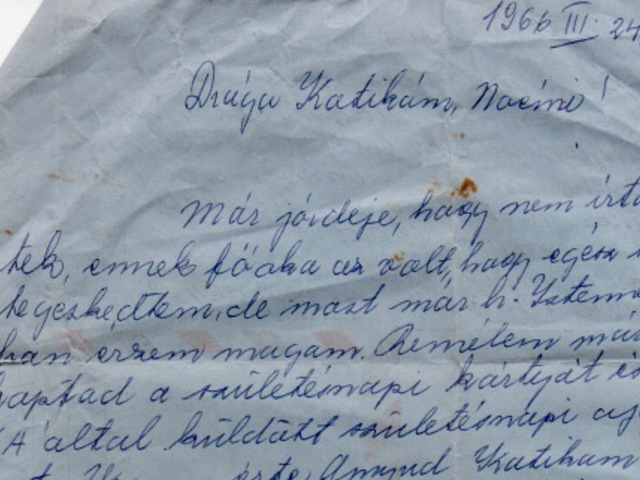 1966 III. 24
Drága Katikám, Nocini!
Már jóideje, hogy nem írta
tek, ennek főoka az volt, hogy egész
tegeskedtem, de most már h. Istenn
ban érzem magam. Remélem már
kaptad a születésnapi kártyát és
által küldött születésnapi aj
érte, Anyud Katikám